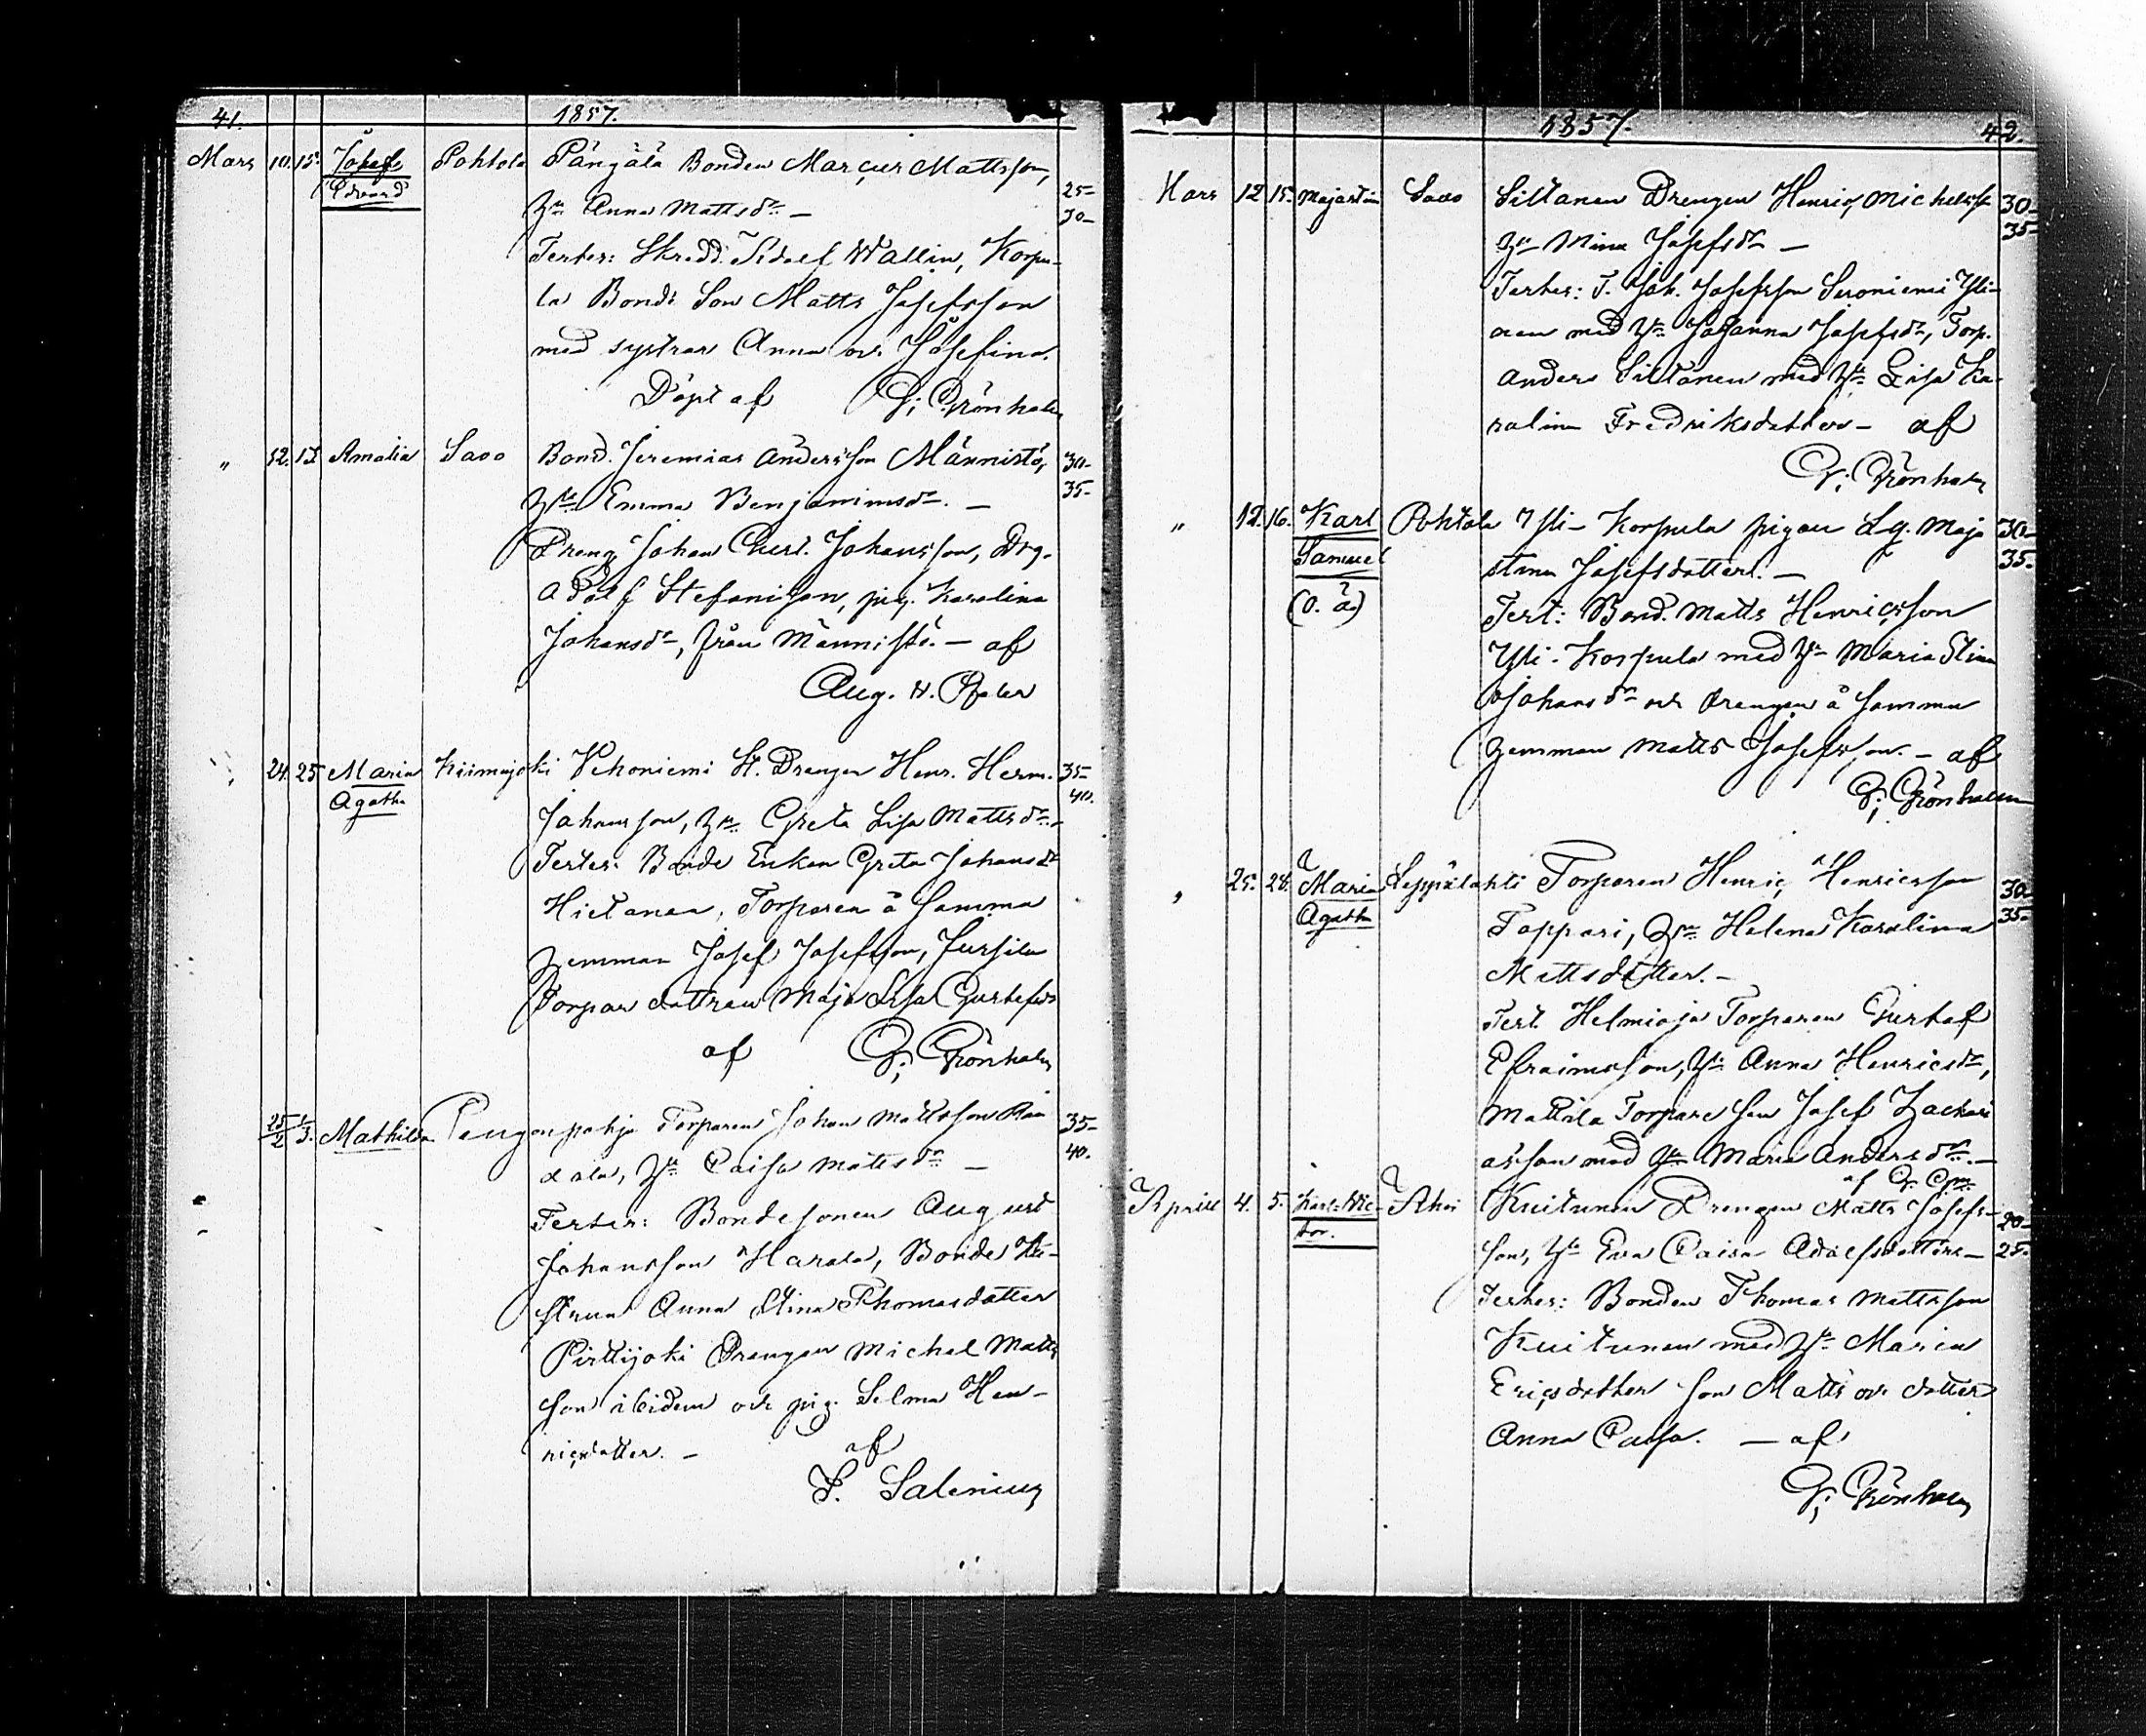 41. 1857.
Mars 10. 15. Josef Pohtola Pängälä Bonden Marcus Mattsson,
Edvard 25-
Hu Anna Mattsdr — 30-
Testes: Skredd. Wallin, Korpu-
la Bonde Son Matts Josefsson
med systrar Anna och Josefina.
Döpt af G. Grönholm
" 12. 13. Amalia Savo Bond. Jeremias Andersson Männistö, 30-
Hu Emma Benjaminsdr. — 35-
Dreng Johan Johansson, Drg.
Adolf Stefansson, pig. Karolina
Johansdr, från Männistö. — af
Aug. H.
" 24. 25. Maria Kiimajoki Vehoniemi St. Drengen Henr. Herm. 35-
Agatha 40.
Johansson, Hu Greta Lisa Mattsdr. -
Testes: Bonde Enkan Greta Johansdr
Hietanen, Torparen å samma
hemman Josef Josefsson, Jussila
Torpare dottren Maja Lisa Gustafs
af G. Grönholm
25/2 1/3. Mathilda Pengonpohja Torparen Johan Mattsson 35-
Hu Caisa Mattsdr — 40.
Testes: Bondesonen August
Johansson Harala, Bonde Hu-
strun Anna Stina Thomasdotter
Pirttijoki Drengen Michel Matts
son ibidem och pig. Selma Hen-
ricsdotter. — af
S. Salenius
1857. 42.
Mars 12 15. Majastina Savo Siltanen Drengen Henric Michelss 30-
Hu Mina Josefsdr — 35-
Testes: T. Joh. Josefsson Yli-
nen med Hu Johanna Josefsdr, Torp.
Anders Siltanen med Hu Lisa Ka-
rolina Fredriksdotter — af
G. Grönholm
" 12. 16. Karl Pohtola Yli-Korpula pigan Lg. Maja 30-
Samuel stina Josefsdotter. — 35-
(o. ä.) Test: Bond. Matts Henricsson
Yli-Korpula med Hu Maria Stina
Johansdr och drengen å samma
hemman Matts Josefsson. — af
G. Grönholm
" 25. 28. Maria Leppälahti Torparen Henric Henricsson 30-
Agatha Toppari, Hu Helena Karolina 35-
Mattsdotter. —
Test. Helmioja Torparen Gustaf
Efraimsson, Hu Anna Henricsdr,
Mattila Torpare Son Josef Zachari
asson med Hu Maria Andersdr. —
af G. Gm.
April 4. 5. Karl-Vic- Ahoi Kuitunen Drengen Matts Josefs- 20-
tor. son, Hu Eva Caisa Adolfsdotter — 25-
Testes: Bonden Thomas Mattsson
Kuitunen med Hu Maria
Ericsdotter Son Matts och dotter
Anna Caisa. — af
G. Grönholm